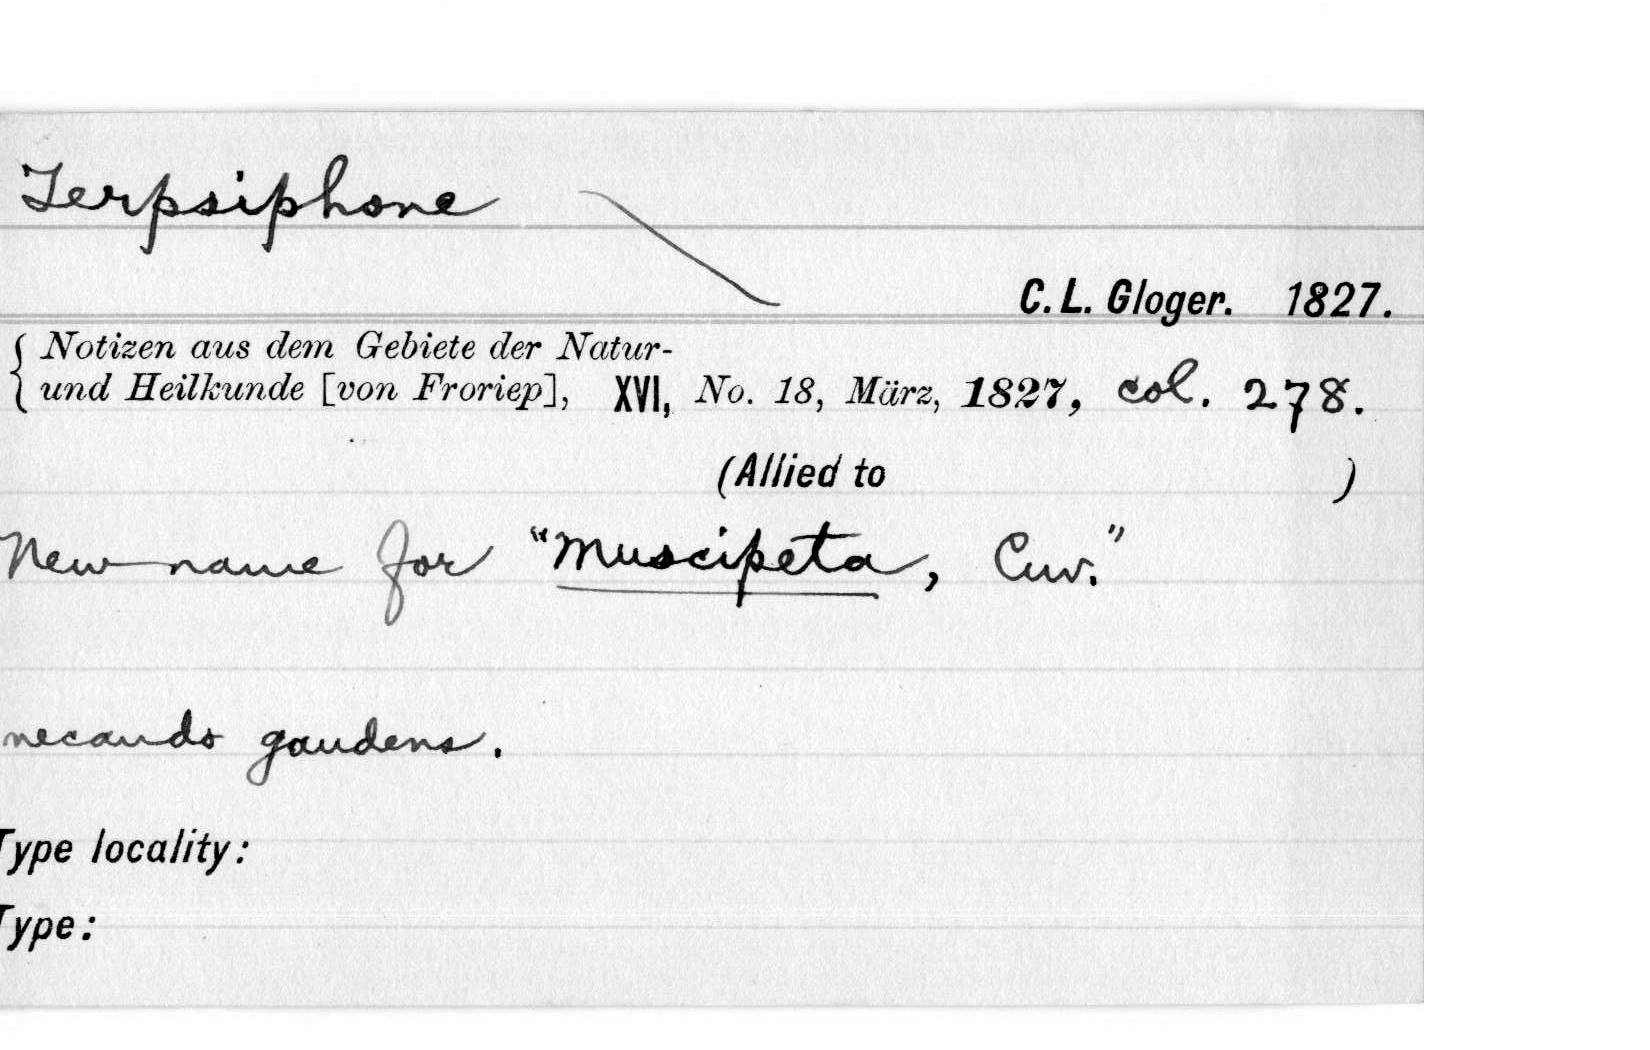 Terpsiphone
C. L. Gloger. 1827.
Notizen aus dem Gebiete der Natur-
und Heilkunde [von Froriep], XVI, No. 18, März, 1827, col. 278.
(Allied to )
New name for "Muscipeta, Cuv."
necando gaudens.
Type locality:
Type: